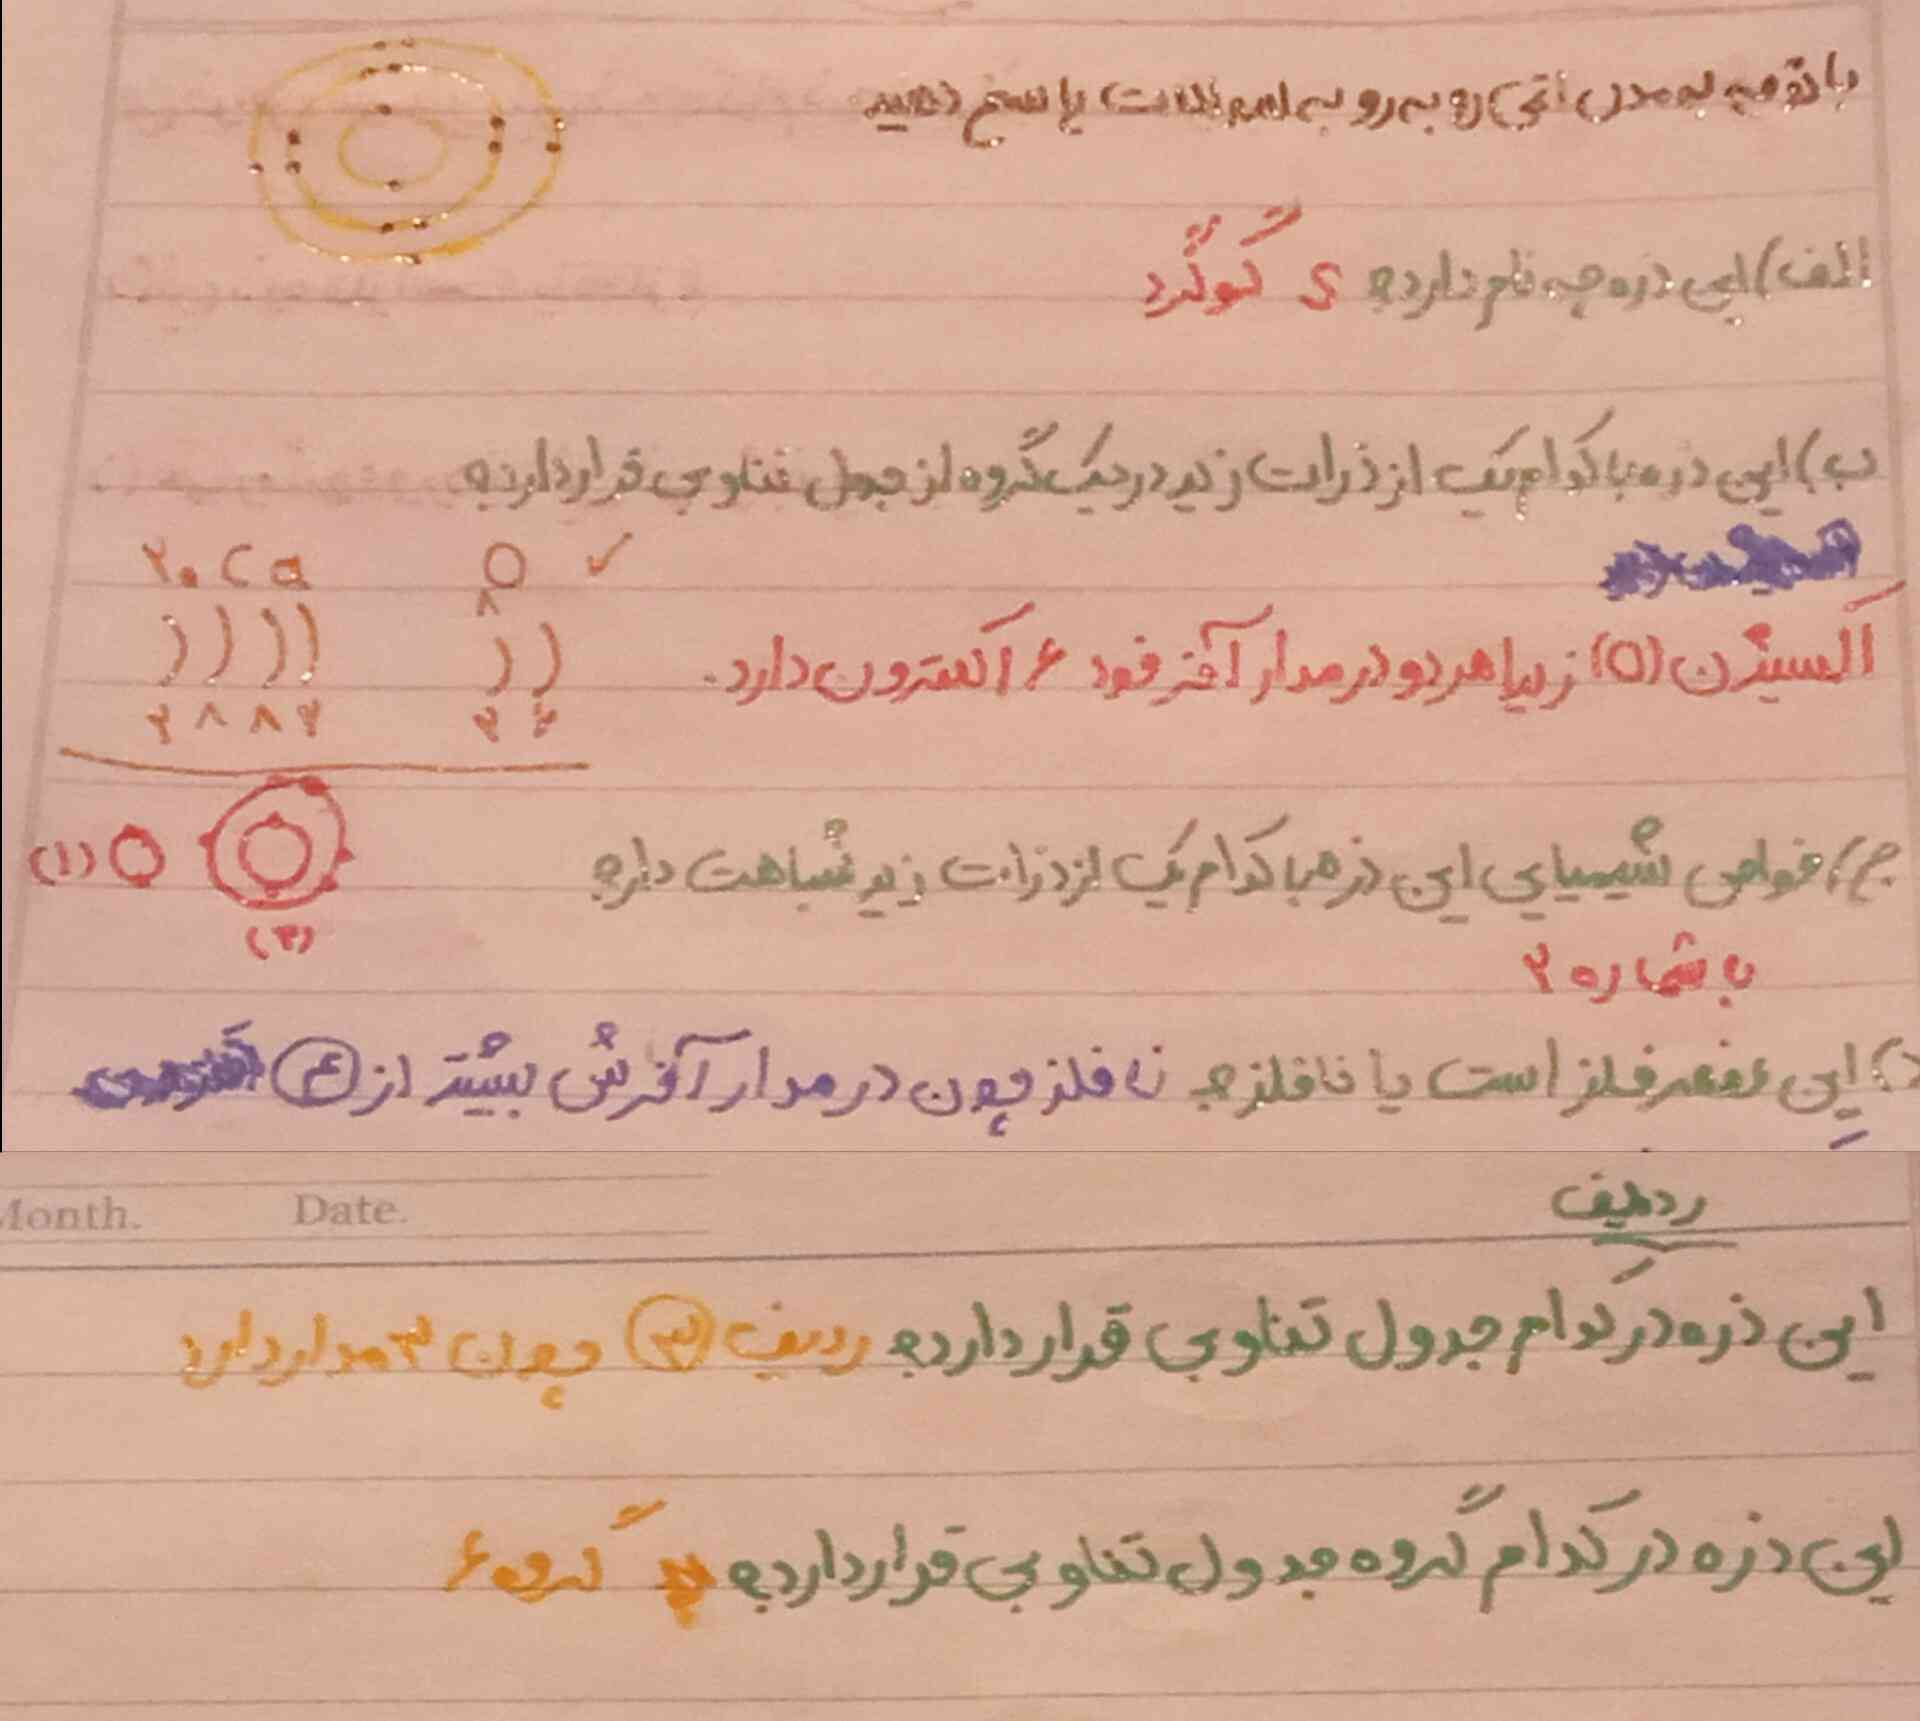 با توجه به مدل اتمی رو به رو به سوالات پاسخ دهید
الف) این ذره چه نام دارد؟ S گوگرد
ب) این ذره با کدام یک از ذرات زیر در یک گروه از جدول تناوبی قرار دارند؟
۲۰Ca O ✓
۸
اکسیژن (O) زیرا هر دو در مدار آخر خود ۶ الکترون دارد.
) ) ) ) ) )
۲ ۸ ۸ ۲ ۲ ۶
ج) خواص شیمیایی این ذره با کدام یک از ذرات زیر شباهت دارد؟
(۱)
(۲)
با شماره ۲
د) این عنصر فلز است یا نافلز؟ نافلز چون در مدار آخرش بیشتر از ۴
Month. Date.
ردیف
این ذره در کدام جدول تناوبی قرار دارد؟ ردیف ۳ چون ۳ مدار دارد
این ذره در کدام گروه جدول تناوبی قرار دارد؟ گروه ۶